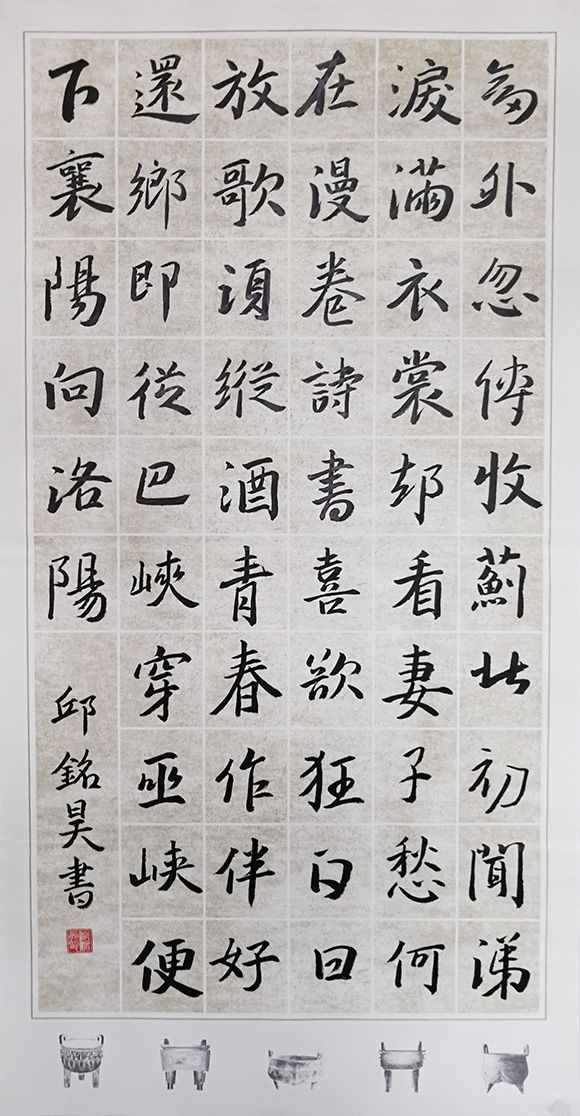 劍外忽傳收薊北初聞涕
淚滿衣裳却看妻子愁何
在漫卷詩書喜欲狂白日
放歌須縱酒青春作伴好
還鄉即從巴峽穿巫峽便
下襄陽向洛陽
邱銘昊書